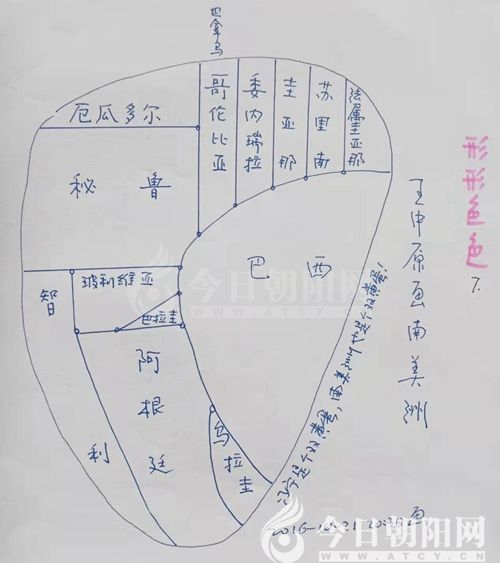 巴拿马
厄瓜多尔
哥伦比亚
委内瑞拉
圭亚那
苏里南
法属圭亚那
秘鲁
巴西
玻利维亚
巴拉圭
智利
阿根廷
乌拉圭
是个双黄蛋，南美洲也是个双黄蛋！
王中原画南美洲
形形色色 7.
2016-10-21
画
今日朝阳网
今日朝阳网
WWW.ATCY.CN